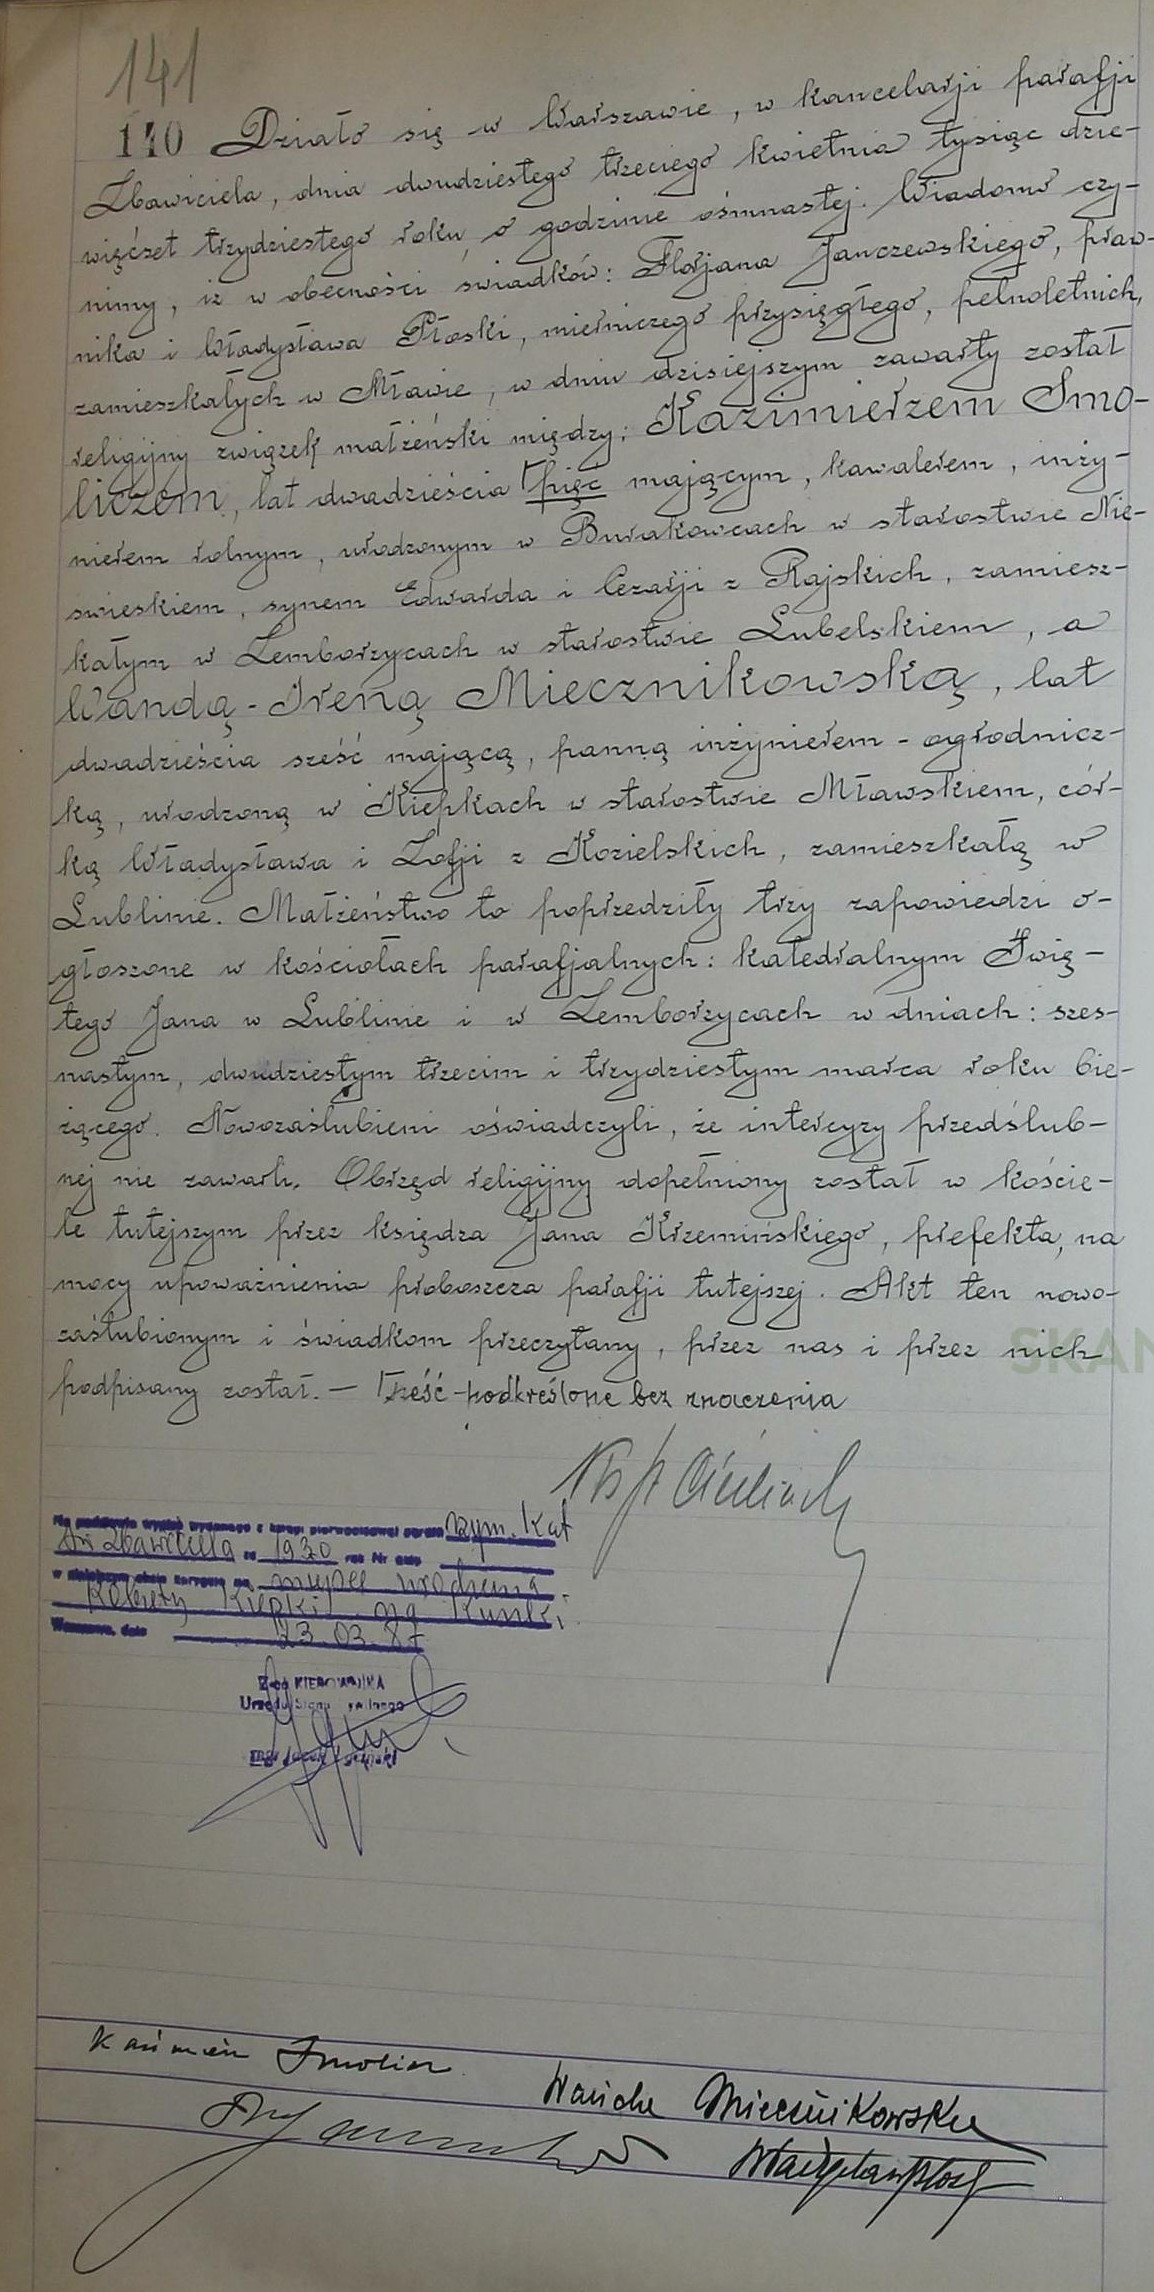 141
110 Działo się w Warszawie, w kancelarji parafji
Zbawiciela, dnia dwudziestego trzeciego kwietnia tysiąc dzie-
więćset trzydziestego roku, o godzinie ośmnastej. Wiadomo czy-
nimy, iż w obecności świadków: Florjana Janczewskiego, praw-
nika i Władysława Płoski, mierniczego przysięgłego, pełnoletnich,
zamieszkałych w Mławie, w dniu dzisiejszym zawarty został
religijny związek małżeński między: Kazimierzem Smo-
liczem, lat dwadzieścia pięć mającym, kawalerem, inży-
nierem rolnym, urodzonym w Burakowcach w starostwie Nie-
świeskiem, synem Edwarda i Cezarji z Rajskich, zamiesz-
kałym w Zemborzycach w starostwie Lubelskiem, a
Wandą-Ireną Miecznikowską, lat
dwadzieścia sześć mającą, panną inżynierem-ogrodnicz-
ką, urodzoną w Kiepkach w starostwie Mławskiem, cór-
ką Władysława i Zofji z Kozielskich, zamieszkałą w
Lublinie. Małżeństwo to poprzedziły trzy zapowiedzi o-
głoszone w kościołach parafjalnych: katedralnym Świę-
tego Jana w Lublinie i w Zemborzycach w dniach: szes-
nastym, dwudziestym trzecim i trzydziestym marca roku bie-
żącego. Nowozaślubieni oświadczyli, że intercyzy przedślub-
nej nie zawarli. Obrzęd religijny dopełniony został w koście-
le tutejszym przez księdza Jana Krzemińskiego, prefekta, na
mocy upoważnienia proboszcza parafji tutejszej. Akt ten nowo-
zaślubionym i świadkom przeczytany, przez nas i przez nich
podpisany został. — sześć - podkreślone bez znaczenia
SKAN
rym. kat
Św Zbawiciela za 1930 rok Nr aktu
miejsce urodzenia
Kobiety Kiepki na
Warszawa, dnia 23.03.87
Z-ca KIEROWNIKA
Urzędu Stanu Cywilnego
Kazimierz Smolicz
Wanda Miecznikowska
Władysław Płoski